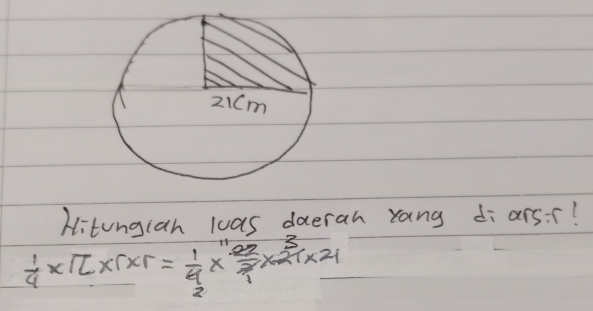 21Cm
Hitunglah luas daerah yang di arsir!
1/4 × π × r × r = 1/4 × 22/7 × 21 × 21
11 3
2 1